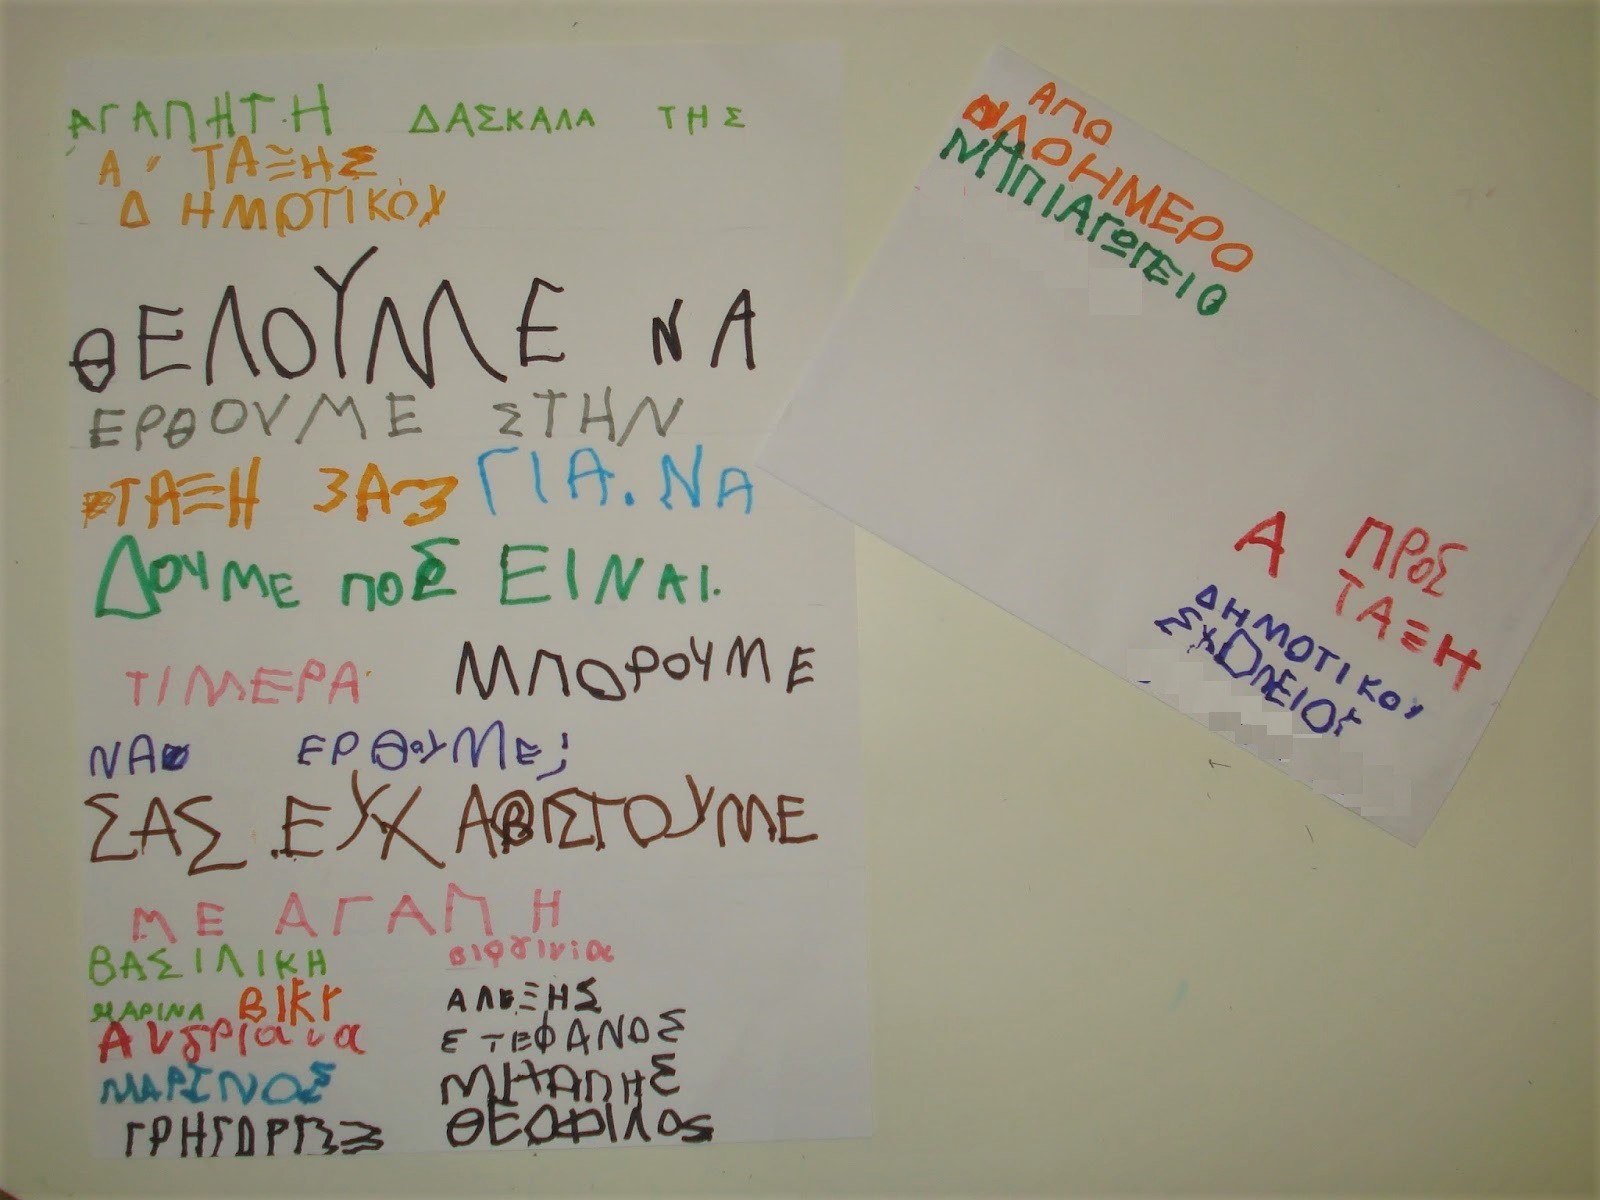 ΑΓΑΠΗΤΗ ΔΑΣΚΑΛΑ ΤΗΣ
Α' ΤΑΞΗΣ
ΔΗΜΟΤΙΚΟΥ
ΘΕΛΟΥΜΕ ΝΑ
ΕΡΘΟΥΜΕ ΣΤΗΝ
ΤΑΞΗ ΣΑΣ ΓΙΑ.ΝΑ
ΔΟΥΜΕ ΠΟΣ ΕΙΝΑΙ.
ΤΙ ΜΕΡΑ ΜΠΟΡΟΥΜΕ
ΝΑ ΕΡΘΟΥΜΕ;
ΣΑΣ ΕΥΧΑΡΙΣΤΟΥΜΕ
ΜΕ ΑΓΑΠΗ
ΒΑΣΙΛΙΚΗ βιργινία
ΜΑΡΙΝΑ ΒΙΚΥ ΑΛΕΞΗΣ
Ανδριανα ΣΤΕΦΑΝΟΣ
ΜΑΡΙΝΟΣ ΜΙΧΑΛΗΣ
ΓΡΗΓΟΡΗΣ ΘΕΟΦΙΛΟΣ
ΑΠΟ
ΟΛΟΗΜΕΡΟ
ΝΗΠΙΑΓΩΓΕΙΟ
ΠΡΟΣ
Α ΤΑΞΗ
ΔΗΜΟΤΙΚΟΥ
ΣΧΟΛΕΙΟΥ